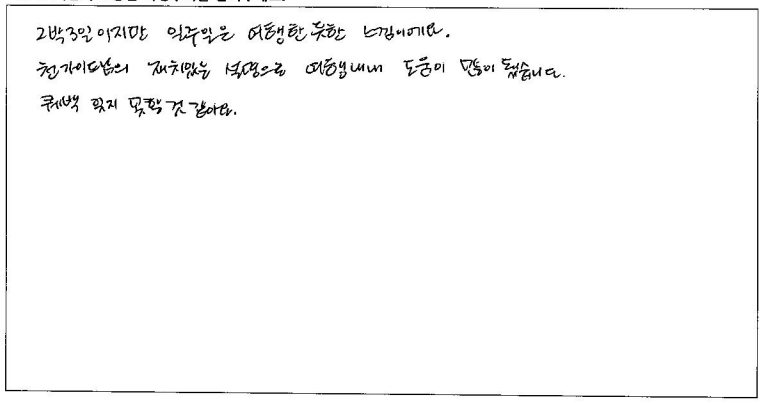 2박3일이지만 일주일은 여행한 듯한 느낌이에요.
천가이드님의 재치있는 설명으로 여행내내 도움이 많이 됐습니다.
퀘백 잊지 못할 것 같아요.